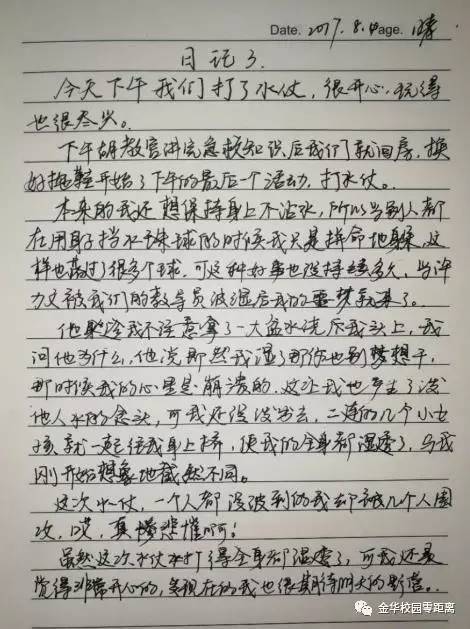 Date. 2017. 8. 4 Page. 晴
日记3.
今天下午我们打了水仗，很开心，玩得
也很尽兴。
下午胡教官讲完急救知识后我们就回房，换
好拖鞋开始了下午的最后一个活动，打水仗。
本来的我还想保持身上不沾水，所以当别人都
在用身子挡水球的时候我只是拼命地躲，这
样也躲过了很多个球，可这种好事也没持续多久，当许
力文被我们的教导员泼湿后我的噩梦就来了。
他趁我不注意拿了一大盆水浇在我头上，我
问他为什么，他说既然我湿了那你也别想干，
那时候我的心里是崩溃的，这让我也产生了泼
他人水的念头，可我还没泼出去，二连的几个小女
孩就一起往我身上挤，使我的全身都湿透了，与我
刚开始想象地截然不同。
这次水仗，一个人都没泼到的我却被几个人围
攻，哎，真悲催啊！
虽然这次水仗打得全身都湿透了，可我还是
觉得非常开心的，
金华校园零距离